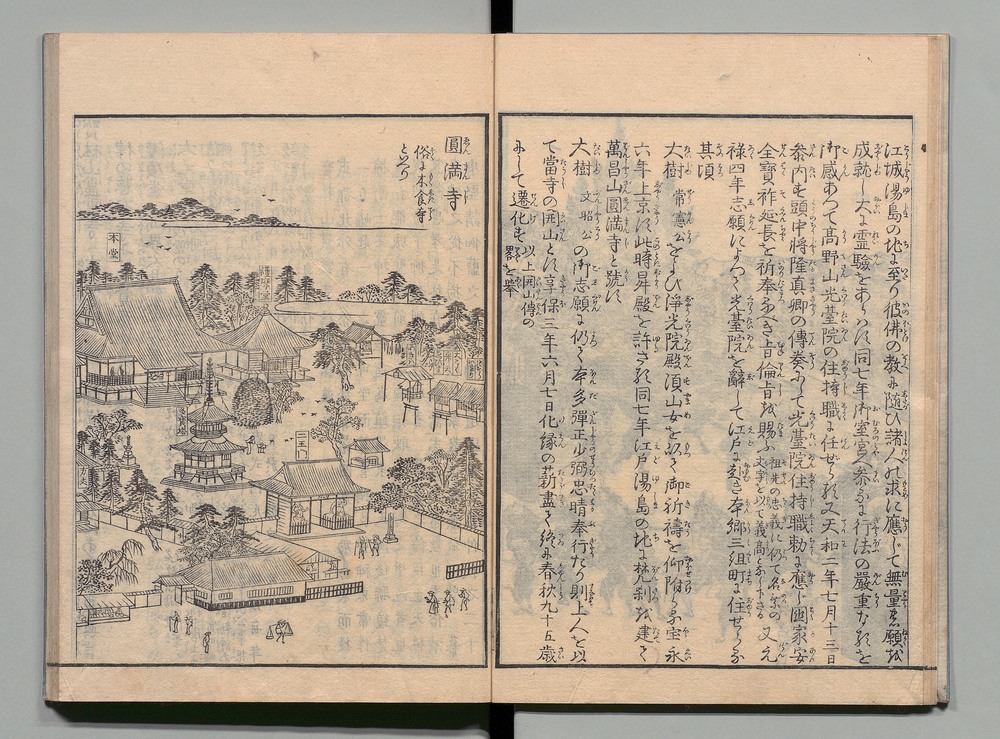 江城湯島の地に至り彼佛の教に随ひ諸人の求に應じて無量の志願を
成就し大に霊驗をあらハす同七年御室宮へ参る行法の嚴重なるを
御感あつて髙野山光臺院の住持職に任せらる又天和二年七月十三日
参内す頭中将隆真卿の傳奏にて光臺院住持職勅に應じ國家安
全寳祚延長を祈奉るへき旨倫旨を賜ふ
祖先の忠義に仍て名家の
文字を以て義高となし下さる
又元
禄四年志願によつて光臺院を辭して江戸に趣き本郷三組町に住せらる
其頃
大樹
常憲公
をよひ淨光院殿須山女を以て御祈禱を仰附らる宝永
六年上京す此時昇殿を許さる同七年江戸湯島の地に梵刹を建て
萬昌山圓満寺と號す
大樹
文昭公
の御志願に仍て本多彈正少弼忠晴奉行たり則上人を以
て當寺の開山とす享保三年六月七日化縁の薪盡て終に春秋九十五歳
にして遷化す
以上開山傳の
畧を舉
圓満寺
俗に木食寺
といへり
本堂
二王門